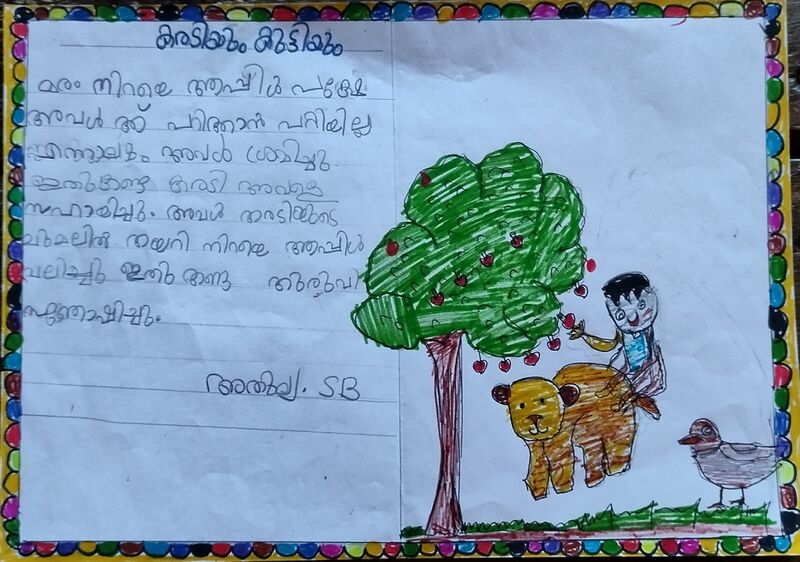 കരടിയും കുട്ടിയും
മരം നിറയെ ആപ്പിൾ പക്ഷേ
അവൾ ക്ക് പറിത്താൻ പറ്റിയില്ല
എന്നാലും അവൾ ശ്രമിച്ചു.
ഇതുകണ്ട കരടി അവളെ
സഹായിച്ചു. അവൾ കരടിയുടെ
പുറത്ത് കയറി നിറയെ ആപ്പിൾ
വലിച്ചു ഇതു കണ്ടു കുരുവി
സന്തോഷിച്ചു.
അതുല്യ. S B